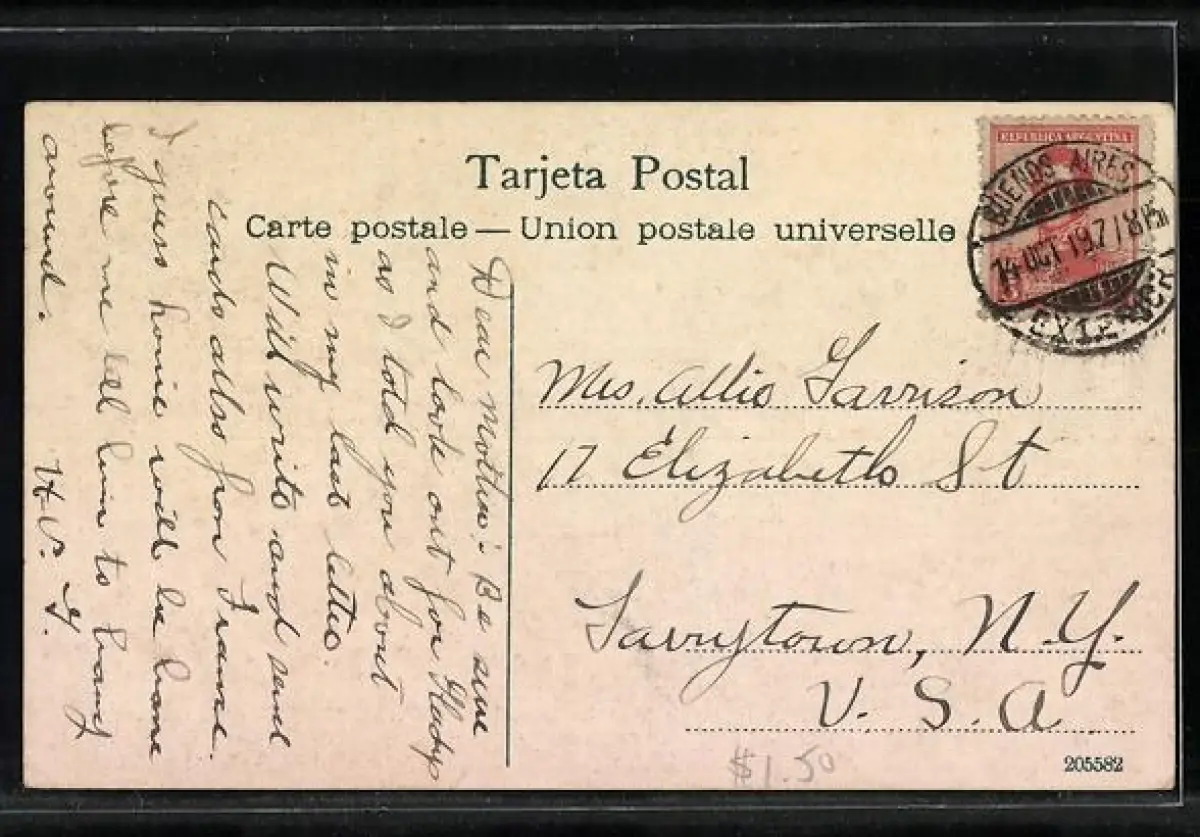 Tarjeta Postal
Carte postale — Union postale universelle
REPUBLICA ARGENTINA
BUENOS AIRES
14 OCT 1917
EXTERIOR
Dear Mother:- Be sure
and look out for Gladys
as I told you about
in my last letter.
Will write and send
cards also from France.
I guess home will be home
before me tell him to hang
around.
H. V. G.
Mrs. Allie Garrison
17 Elizabeth St
Tarrytown, N.Y.
U. S. A.
$1.50
205582